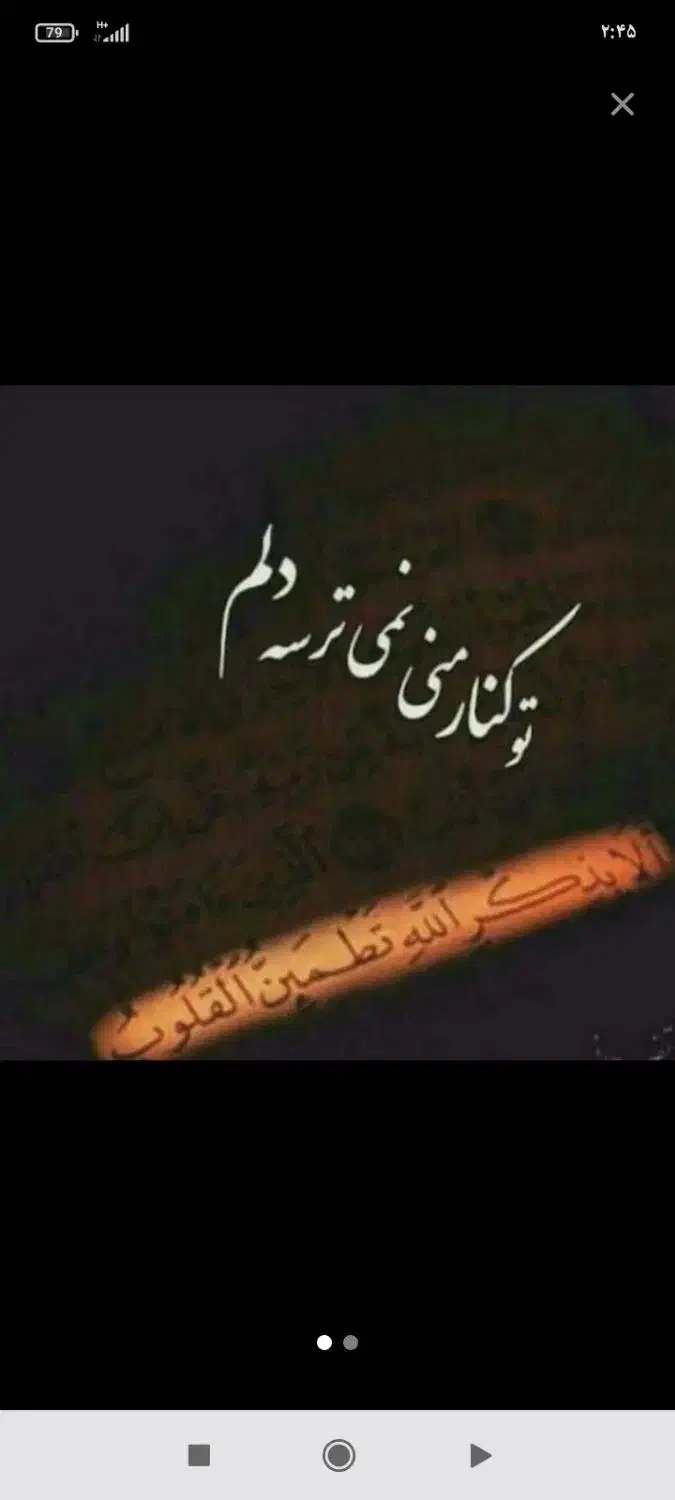 79
H+
۲:۴۵
تو کنار منی نمی ترسه دلم
أَلَا بِذِكْرِ اللَّهِ تَطْمَئِنُّ الْقُلُوبُ